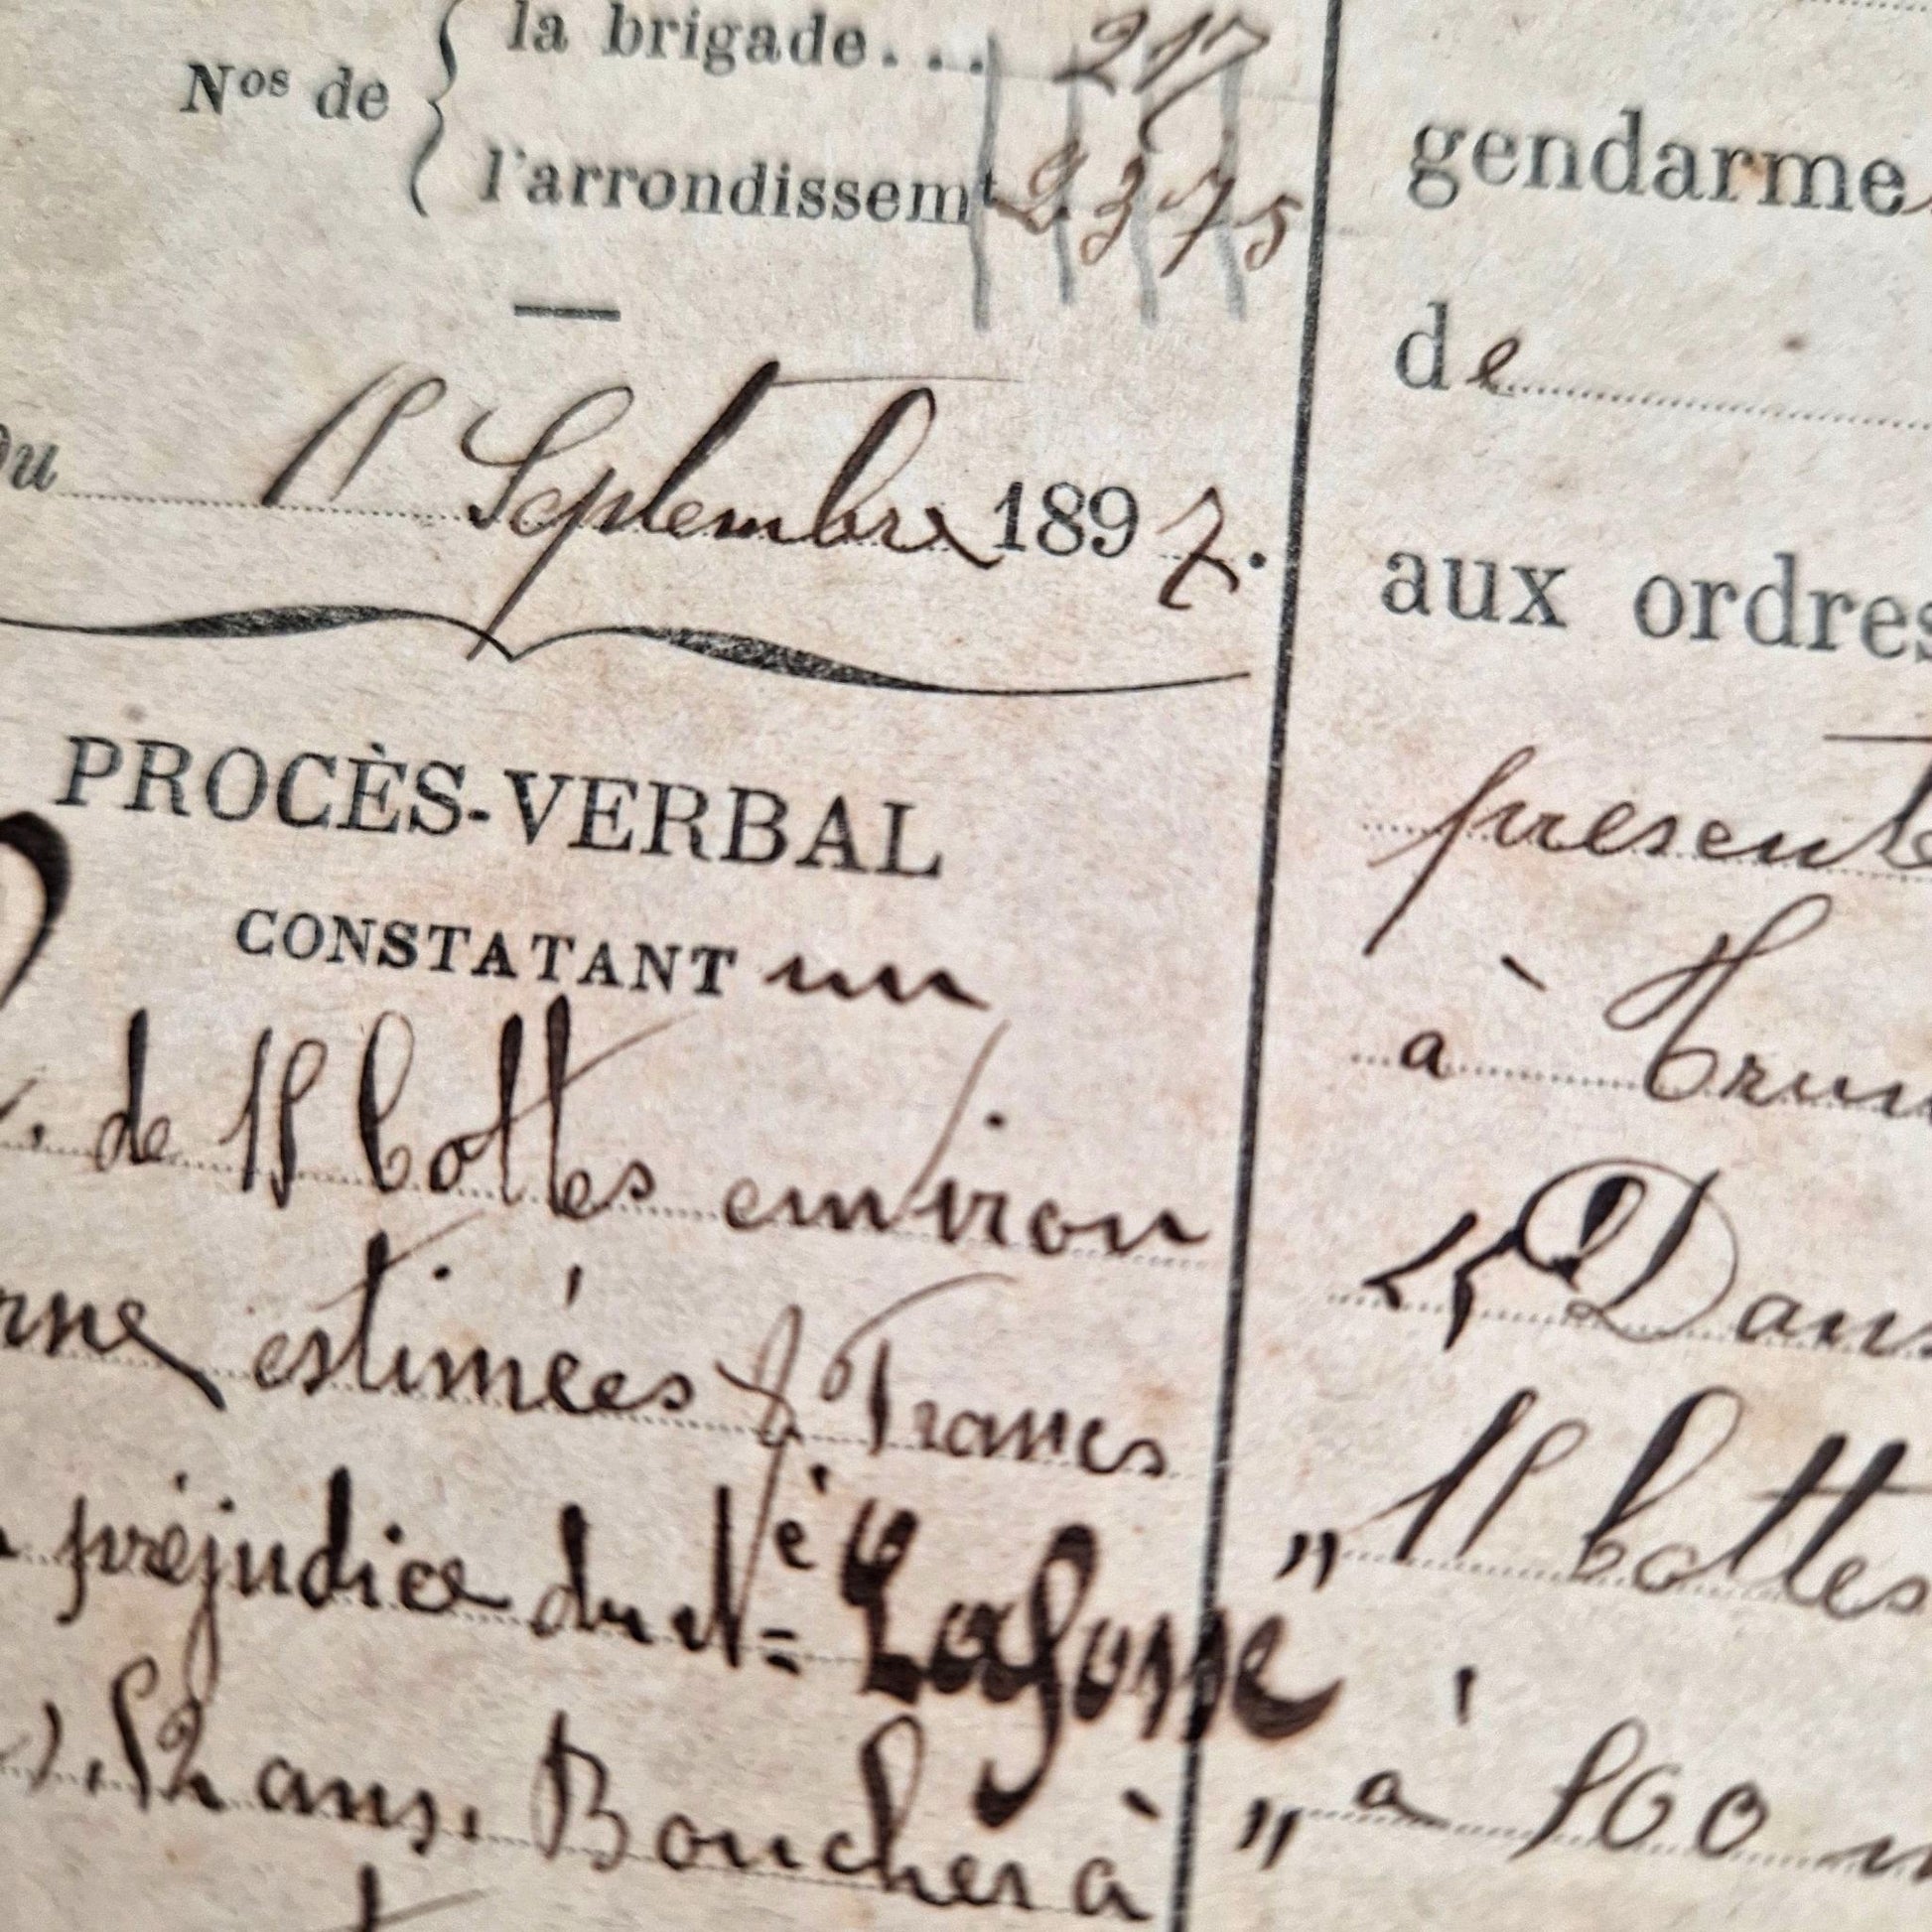 Nos de
la brigade... 217
l'arrondissemt 2375
Du 15 Septembre 1897.
PROCÈS-VERBAL
CONSTATANT un
de 15 bottes environ
estimées 5 Francs
préjudice du Né Lafosse
52 ans, Boucher à
gendarme
de
aux ordres
présent
à Trun
" 15 bottes
" à 500 m